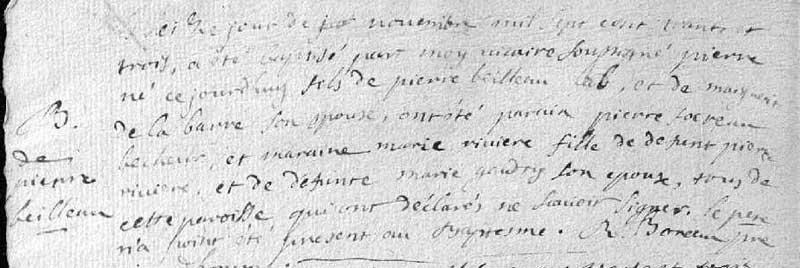 jour de novembre mil sept cent trante et
trois, a été baptisé par moy vicaire soussigné pierre
né ce jourd'huy fils de pierre beilleau lab, et de marguerit
B. de la barre son epouse, ont été parain pierre
de becheur, et maraine marie riviere fille de defunt pierre
pierre riviere, et de défunte marie gaudry son epoux, tous de
beilleau cette paroisse qui ont déclarés ne scavoir signer. le pere
n'a point été present au baptesme. R. Boreau pre